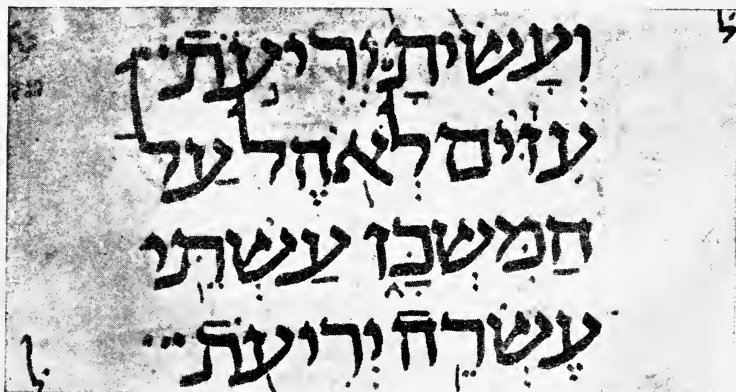 וְעָשִׂיתָ יְרִיעֹת
עִזִּים לְאֹהֶל עַל
הַמִּשְׁכָּן עַשְׁתֵּי
עֶשְׂרֵה יְרִיעֹת